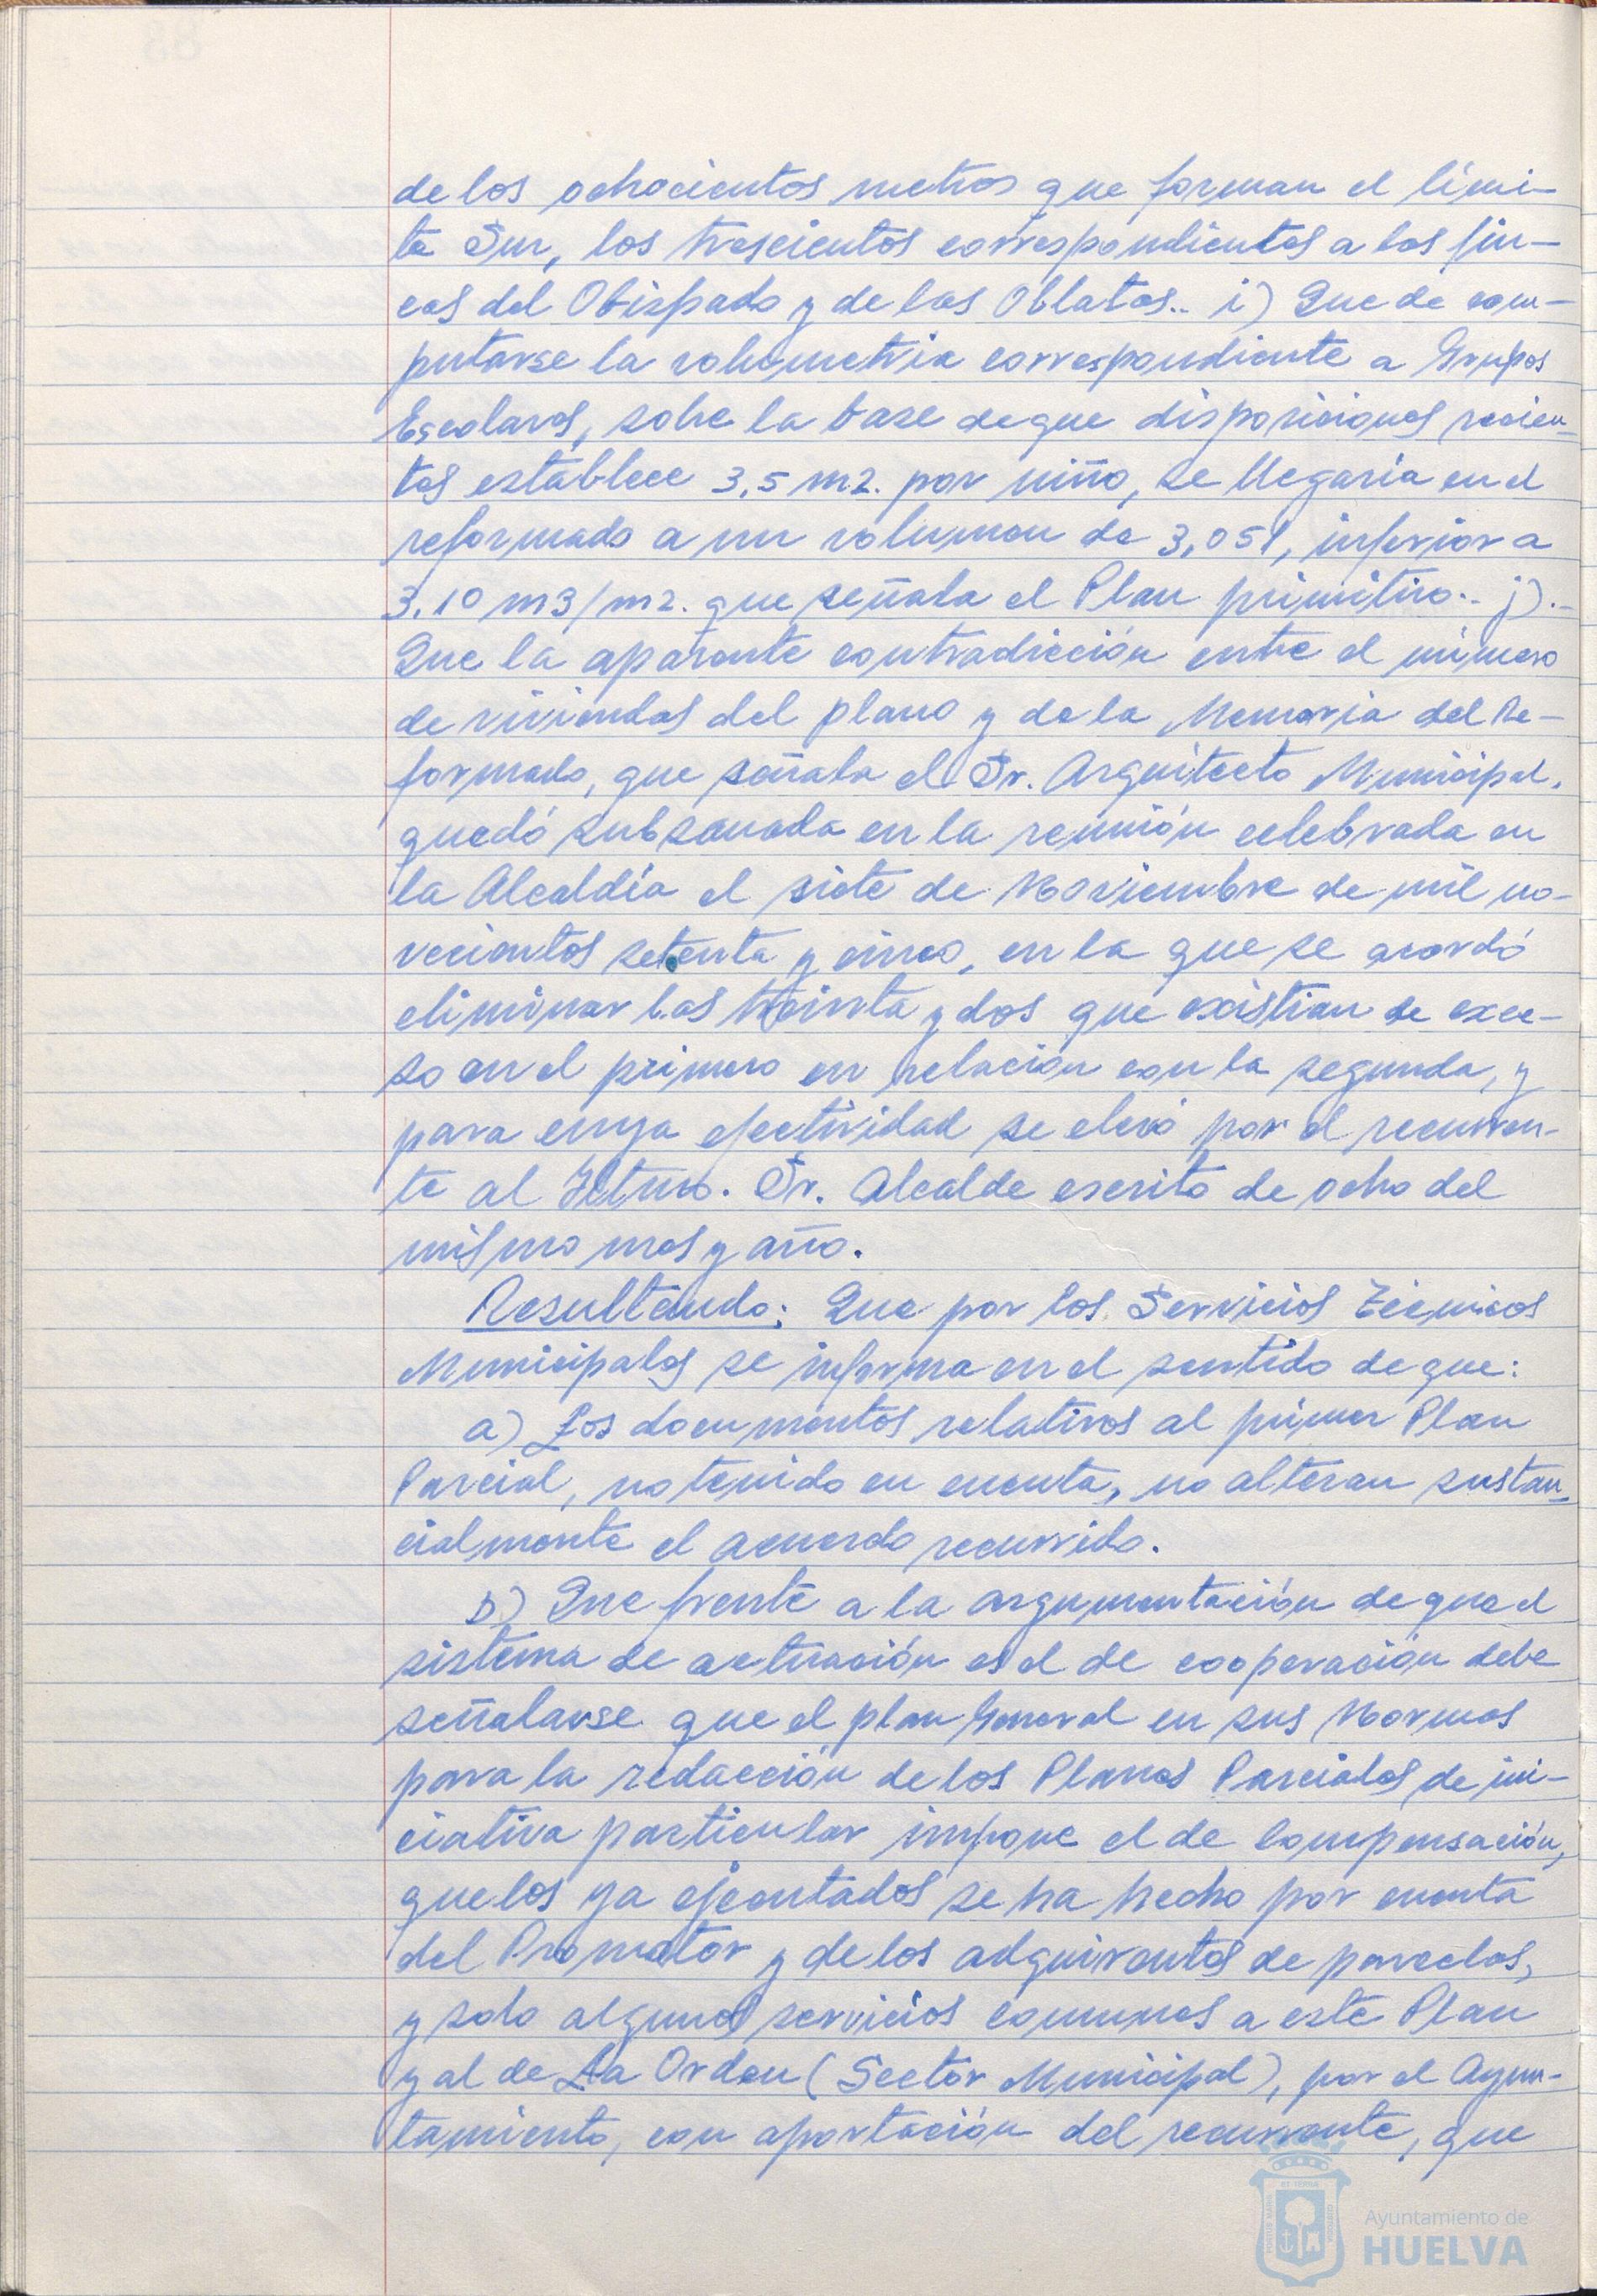 de los ochocientos metros que forman el lími-
te Sur, los trescientos correspondientes a las fin-
cas del Obispado y de las Oblatas.. i) Que de com-
putarse la volumetria correspondiente a Grupos
Escolares, sobre la base de que disposiciones recien-
tes establece 3,5 m2. por niño, se llegaria en el
reformado a un volumen de 3,051, inferior a
3,10 m3/m2. que señala el Plan primitivo.- j).-
Que la aparente contradicción entre el número
de viviendas del plano y de la Memoria del Re-
formado, que señala el Sr. Arquitecto Municipal,
quedó subsanada en la reunión celebrada en
la Alcaldía el siete de Noviembre de mil no-
vecientos setenta y cinco, en la que se acordó
eliminar las treinta y dos que existian de exce-
so en el primero en relación con la segunda, y
para cuya efectividad se elevó por el recurren-
te al Iltmo. Sr. Alcalde escrito de ocho del
mismo mes y año.
Resultando: Que por los Servicios Técnicos
Municipales se informa en el sentido de que:
a) Los documentos relativos al primer Plan
Parcial, no tenido en cuenta, no alteran sustan-
cialmente el acuerdo recurrido.
b) Que frente a la argumentación de que el
sistema de actuación es el de cooperación debe
señalarse que el plan General en sus Normas
para la redacción de los Planes Parciales de ini-
ciativa particular impone el de compensación,
que los ya ejecutados se ha hecho por cuenta
del Promotor y de los adquirentes de parcelas,
y solo algunos servicios comunes a este Plan
y al de La Orden (Sector Municipal), por el Ayun-
tamiento, con aportación del recurrente, que
Ayuntamiento de
HUELVA